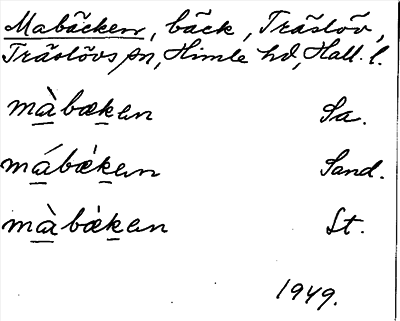 Mabäcken, bäck, Träslöv,
Träslövs sn, Himle hd, Hall. l.
màbæken Sa.
mábæ̀ken Sand.
màbæ̀ken St.
1949.